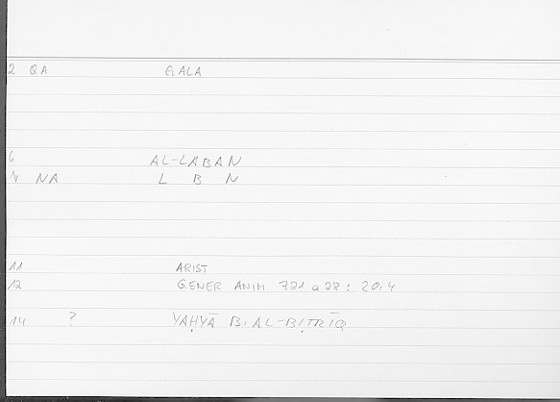 2 QA GALA
6 AL-LABAN
7 NA L B N
11 ARIST
12 GENER ANIM. 721 a 28 : 20.4
14 ? YAḤYĀ B. AL-BIṬRĪQ